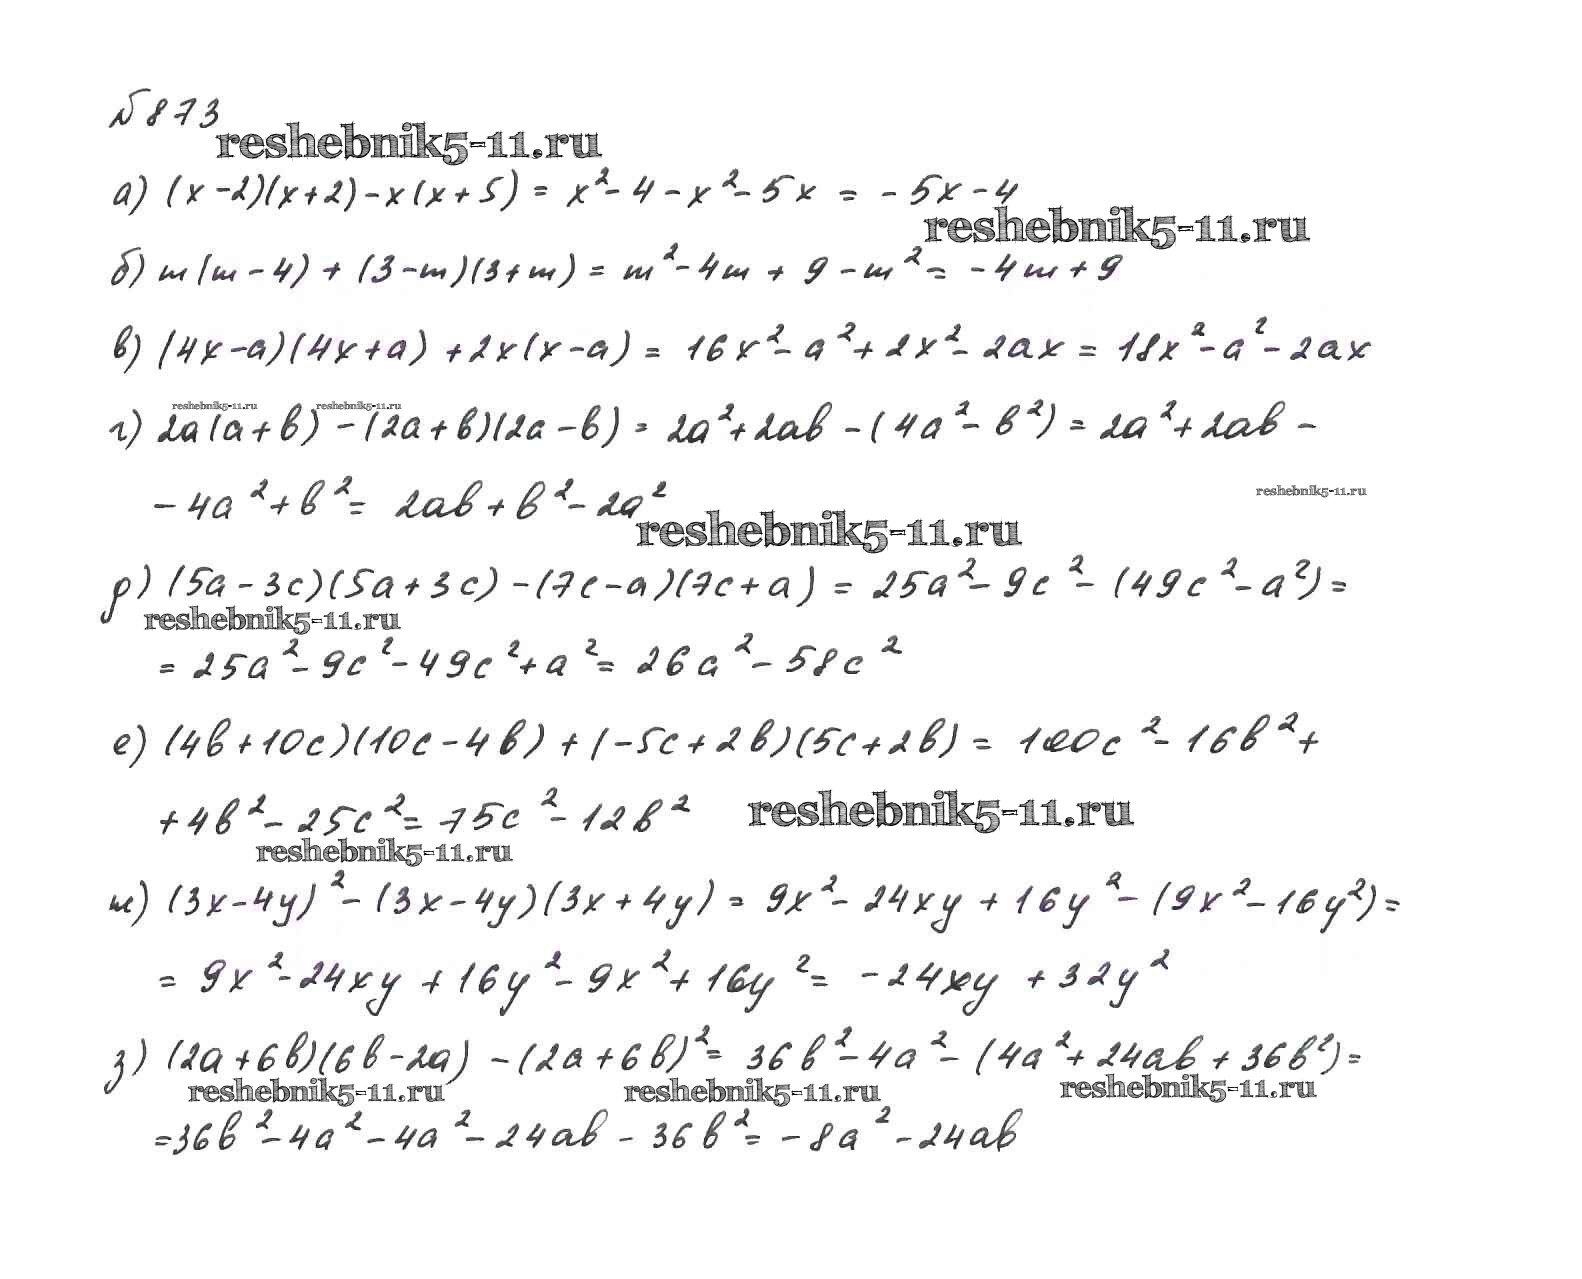 №873
reshebnik5-11.ru
а) (x-2)(x+2)-x(x+5) = x²-4-x²-5x = -5x-4
reshebnik5-11.ru
б) m(m-4)+(3-m)(3+m) = m²-4m+9-m² = -4m+9
в) (4x-a)(4x+a)+2x(x-a) = 16x²-a²+2x²-2ax = 18x²-a²-2ax
reshebnik5-11.ru reshebnik5-11.ru
г) 2a(a+b)-(2a+b)(2a-b) = 2a²+2ab-(4a²-b²) = 2a²+2ab-
-4a²+b² = 2ab+b²-2a²
reshebnik5-11.ru
reshebnik5-11.ru
д) (5a-3c)(5a+3c)-(7c-a)(7c+a) = 25a²-9c²-(49c²-a²) =
reshebnik5-11.ru
= 25a²-9c²-49c²+a² = 26a²-58c²
е) (4b+10c)(10c-4b)+(-5c+2b)(5c+2b) = 100c²-16b²+
+4b²-25c² = 75c²-12b²
reshebnik5-11.ru
reshebnik5-11.ru
ж) (3x-4y)²-(3x-4y)(3x+4y) = 9x²-24xy+16y²-(9x²-16y²) =
= 9x²-24xy+16y²-9x²+16y² = -24xy+32y²
з) (2a+6b)(6b-2a)-(2a+6b)² = 36b²-4a²-(4a²+24ab+36b²) =
reshebnik5-11.ru reshebnik5-11.ru reshebnik5-11.ru
=36b²-4a²-4a²-24ab-36b² = -8a²-24ab